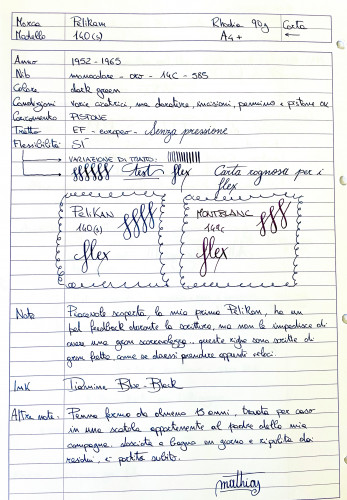 Marca Pelikan Rhodia 90g Carta
Modello 140(s) A4+ ←
Anno 1952-1965
Nib monocolore - oro - 14C - 585
Colore dark green
Condizioni varie cicatrici, ma dorature, incisioni, pennino e pistone ok
Caricamento PISTONE
Tratto EF - europeo - Senza pressione
Flessibilità SI
VARIAZIONE DI TRATTO:
test flex Carta rognosa per i
flex
PELIKAN
140(s)
flex
MONTBLANC
149c
flex
Note Piacevole scoperta, la mia prima Pelikan, ha un
bel feedback durante la scrittura, ma non le impedisce di
avere una gran scorrevolezza.. queste righe sono scritte di
gran fretta come se dovessi prendere appunti veloci.
Ink Diamine Blue-Black
Altre note: Penna ferma da almeno 15 anni, trovata per caso
in una scatola appartenente al padre della mia
compagna. Lasciata a bagno un giorno e ripulita dai
residui, è partita subito.
mathias